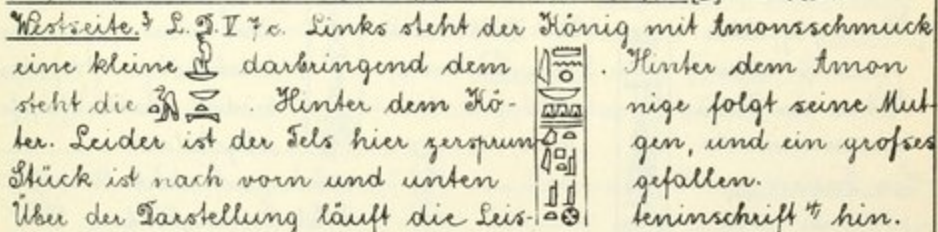 Westseite.³ L. D. V 7c. Links steht der König mit Amonsschmuck
eine kleine darbringend dem . Hinter dem Amon
steht die . Hinter dem Kö- nige folgt seine Mut-
ter. Leider ist der Fels hier zersprun- gen, und ein großes
Stück ist nach vorn und unten gefallen.
Über der Darstellung läuft die Leis- teninschrift ⁴⁾ hin.